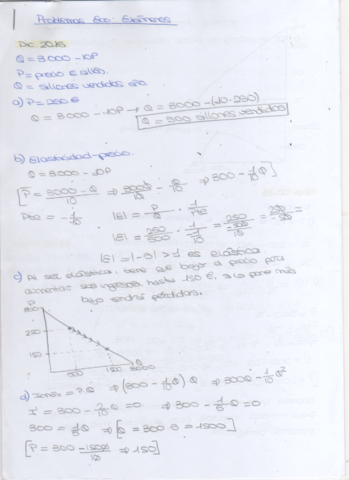 1 Problemas Eco. Exámenes
Dic 2015
Q = 3000 - 10P
P = precio € sillón
Q = sillones vendidos año
a) P = 250 €
Q = 3000 - 10P → Q = 3000 - (10·250)
Q = 500 sillones vendidos
b) Elasticidad-precio
Q = 3000 - 10P
[P = 3000 - Q / 10 ⇒ 3000/10 - Q/10 ⇒ 300 - 1/10 Q]
= -1/10 |E| = P/Q · 1
|E| = 250/500 · 1/-1/10 = 250/-500/10 = 250/-50 =
|E| = |-5| > 1 es elástica
c) Al ser elástica, tiene que bajar el precio para
aumentar sus ingresos, hasta 150 €, si lo pone más
bajo tendrá pérdidas.
P
300
250
150
500 1500 Q
d) = P·Q ⇒ (300 - 1/10 Q) Q ⇒ 300Q - 1/10 Q²
I' = 300 - 2/10 Q = 0 ⇒ 300 - 1/5 Q = 0
300 = 1/5 Q ⇒ [Q = 300·5 = 1500]
[P = 300 - 1500/10 ⇒ 150]